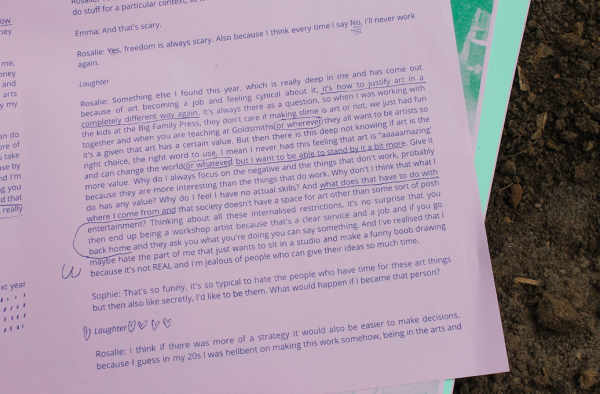 do stuff for a particular context, so
Emma: And that's scary.
Rosalie: Yes, freedom is always scary. Also because I think every time I say No, I'll never work
again.
Laughter
Rosalie: Something else I found this year, which is really deep in me and has come out
because of art becoming a job and feeling cynical about it, it's how to justify art in a
completely different way again. It's always there as a question, so when I was working with
the kids at the Big Family Press, they don't care if making slime is art or not, we just had fun
together and when you are teaching at Goldsmiths or wherever they all want to be artists so
it's a given that art has a certain value. But then there is this deep not knowing if art is the
right choice, the right word to use. I mean I never had this feeling that art is "aaaaamazing'
and can change the world or whatever but I want to be able to stand by it a bit more. Give it
more value. Why do I always focus on the negative and the things that don't work, probably
because they are more interesting than the things that do work. Why don't I think that what I
do has any value? Why do I feel I have no actual skills? And what does that have to do with
where I come from and that society doesn't have a space for art other than some sort of posh
entertainment? Thinking about all these internalised restrictions, it's no surprise that you
then end up being a workshop artist because that's a clear service and a job and if you go
back home and they ask you what you're doing you can say something. And I've realised that I
maybe hate the part of me that just wants to sit in a studio and make a funny boob drawing
because it's not REAL and I'm jealous of people who can give their ideas so much time.
Sophie: That's so funny, it's so typical to hate the people who have time for these art things
but then also like secretly, I'd like to be them. What would happen if I became that person?
Laughter
Rosalie: I think if there was more of a strategy it would also be easier to make decisions,
because I guess in my 20s I was hellbent on making this work somehow, being in the arts and
now
ney
me,
oney
and
arts
y my
an do
ore of
u take
use by
nd I'm
ng you
d that
really
xt year